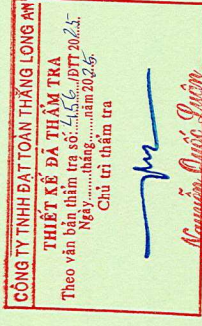 CÔNG TY TNHH ĐẠT TOÀN THẮNG LONG AN
THIẾT KẾ ĐÃ THẨM TRA
Theo văn bản thẩm tra số: 456/ĐTT 2025.
Ngày.......tháng.......năm 2025.
Chủ trì thẩm tra
Nguyễn Quốc Luân